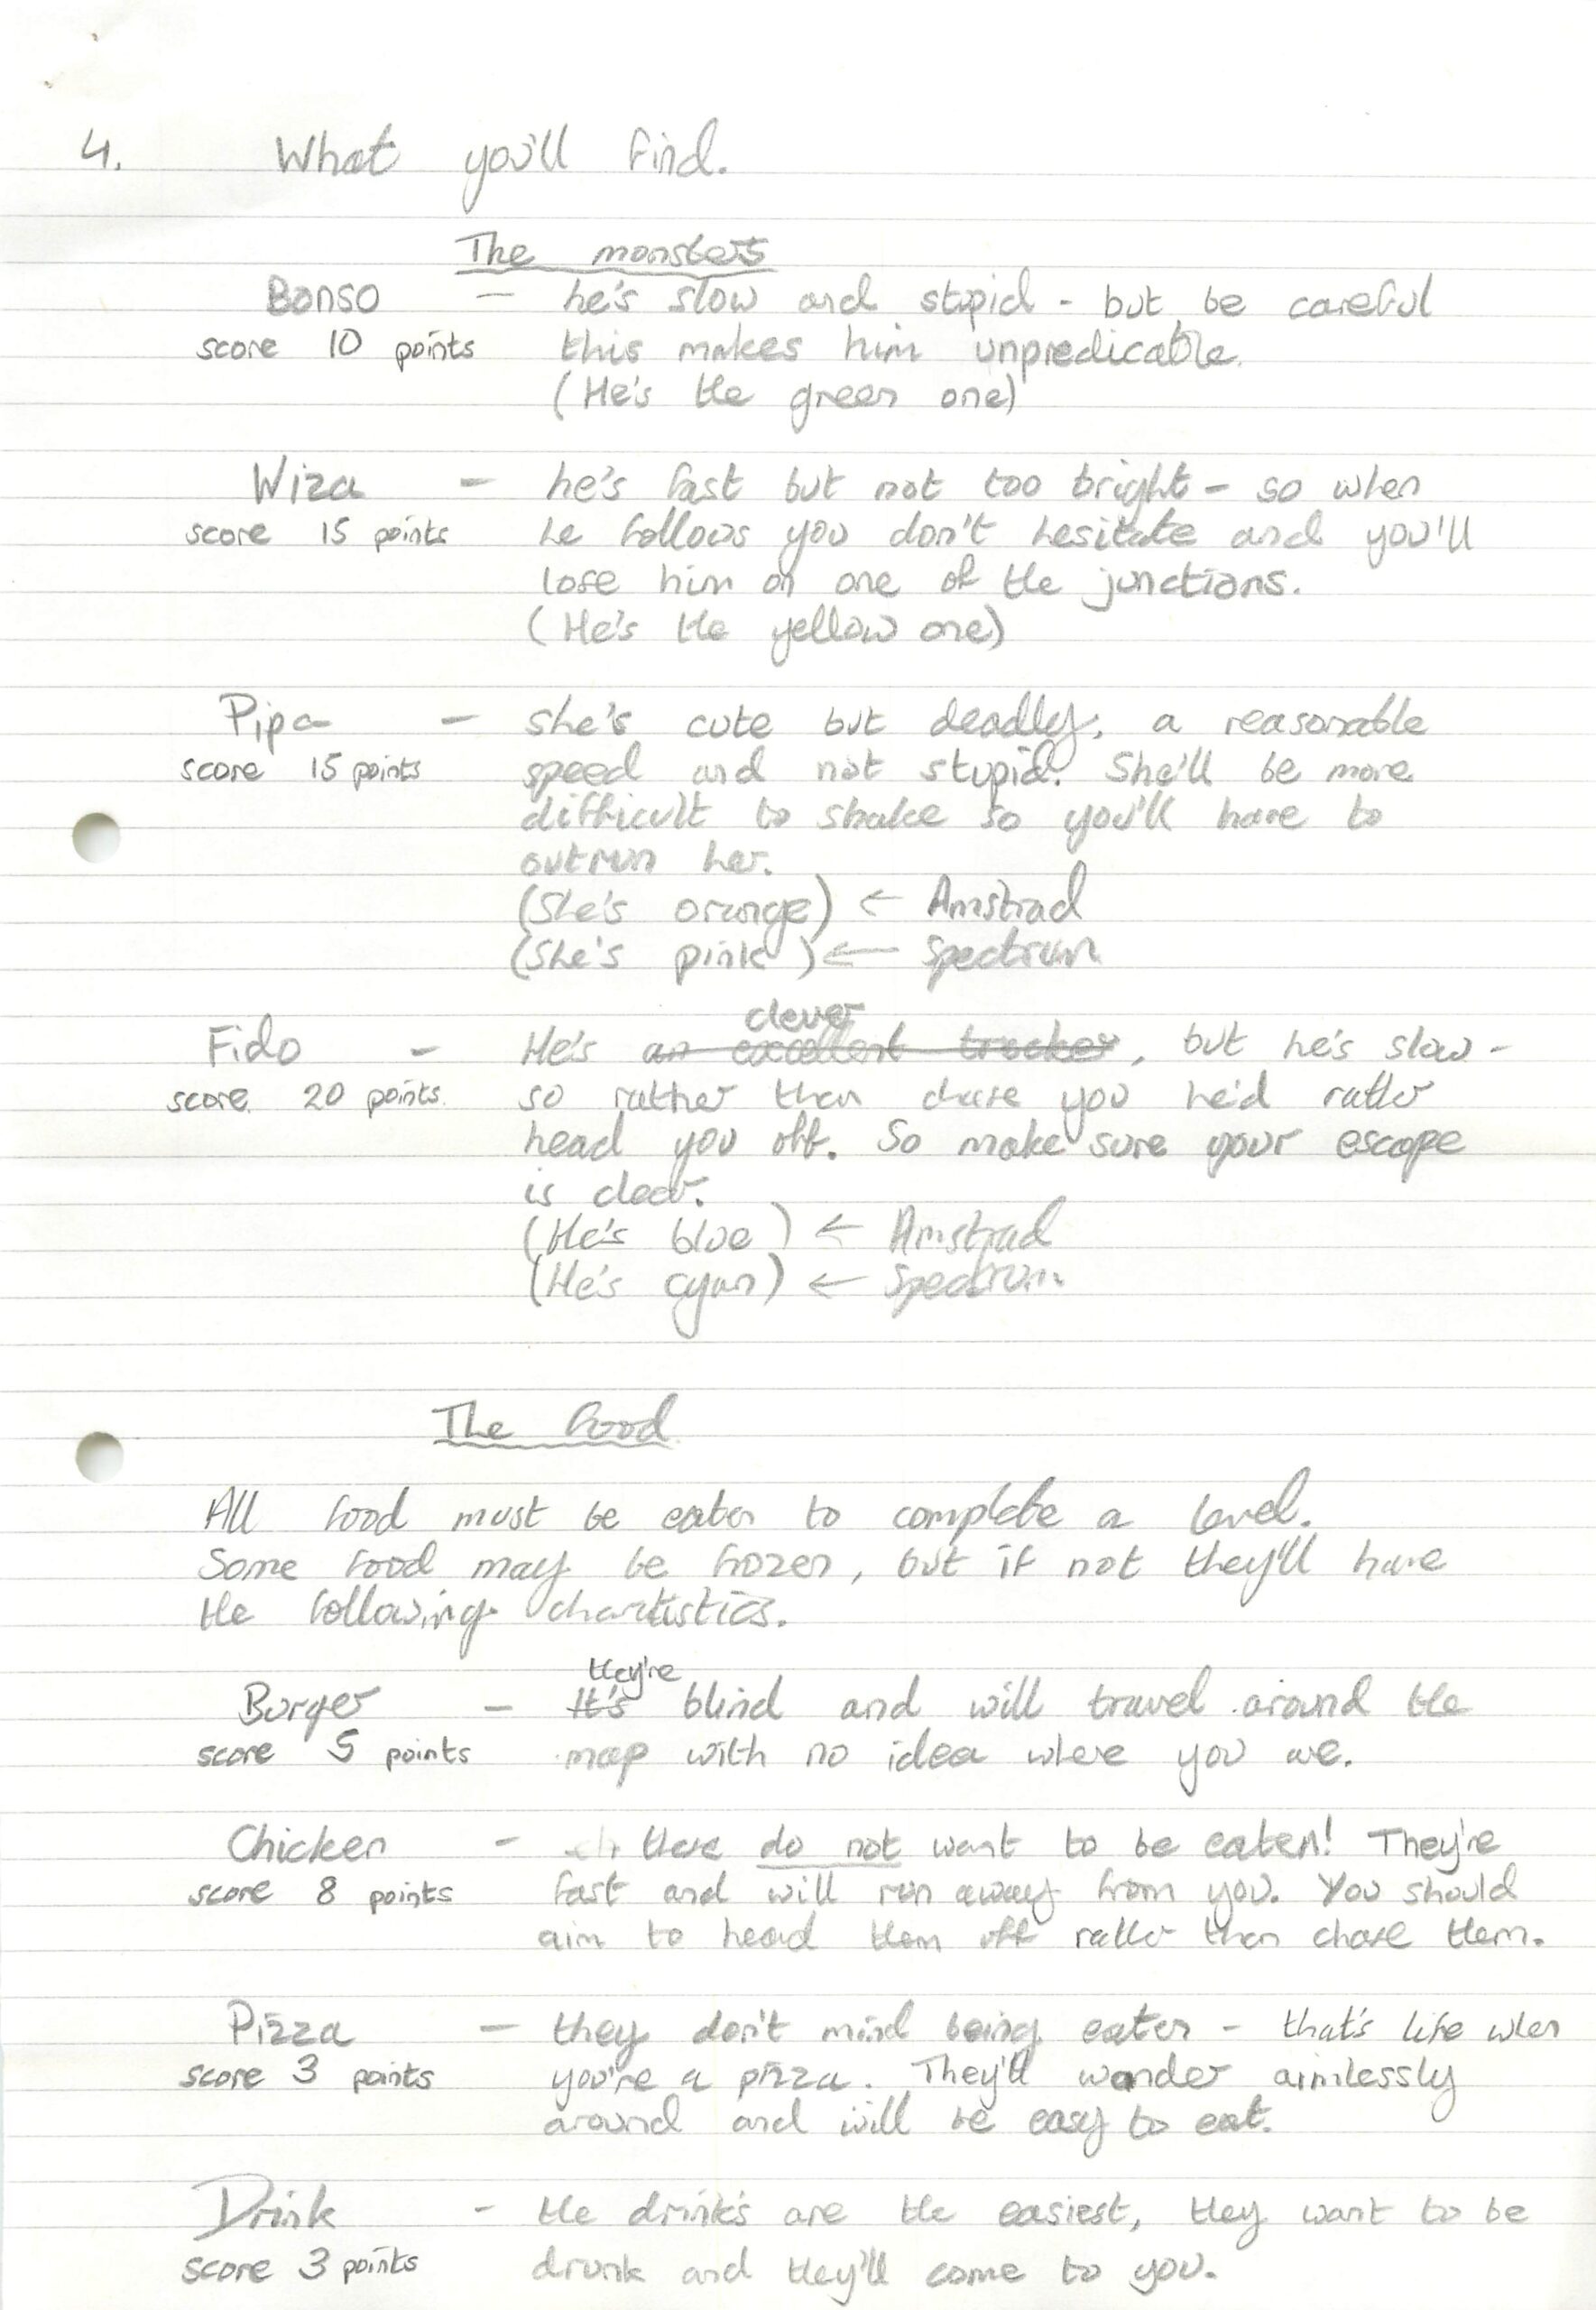 4. What you'll find.
The monsters
Bonso - he's slow and stupid - but be careful
score 10 points this makes him unpredicable.
(He's the green one)
Wiza - he's fast but not too bright - so when
score 15 points he follows you don't hesitate and you'll
lose him on one of the junctions.
(He's the yellow one)
Pipa - she's cute but deadly, a reasonable
score 15 points speed and not stupid. She'll be more
difficult to shake so you'll have to
outrun her.
(She's orange) ← Amstrad
(She's pink) ← Spectrum
clever
Fido - He's an excellent tracker, but he's slow -
score 20 points so rather than chase you he'd rather
head you off. So make sure your escape
is clear.
(He's blue) ← Amstrad
(He's cyan) ← Spectrum
The food
All food must be eaten to complete a level.
Some food may be frozen, but if not they'll have
the following chartistics.
they're
Burger - It's blind and will travel around the
score 5 points map with no idea where you are.
Chicken - these do not want to be eaten! They're
score 8 points fast and will run away from you. You should
aim to head them off rather than chase them.
Pizza - they don't mind being eaten - that's life when
score 3 points you're a pizza. They'll wander aimlessly
around and will be easy to eat.
Drink - the drink's are the easiest, they want to be
score 3 points drunk and they'll come to you.